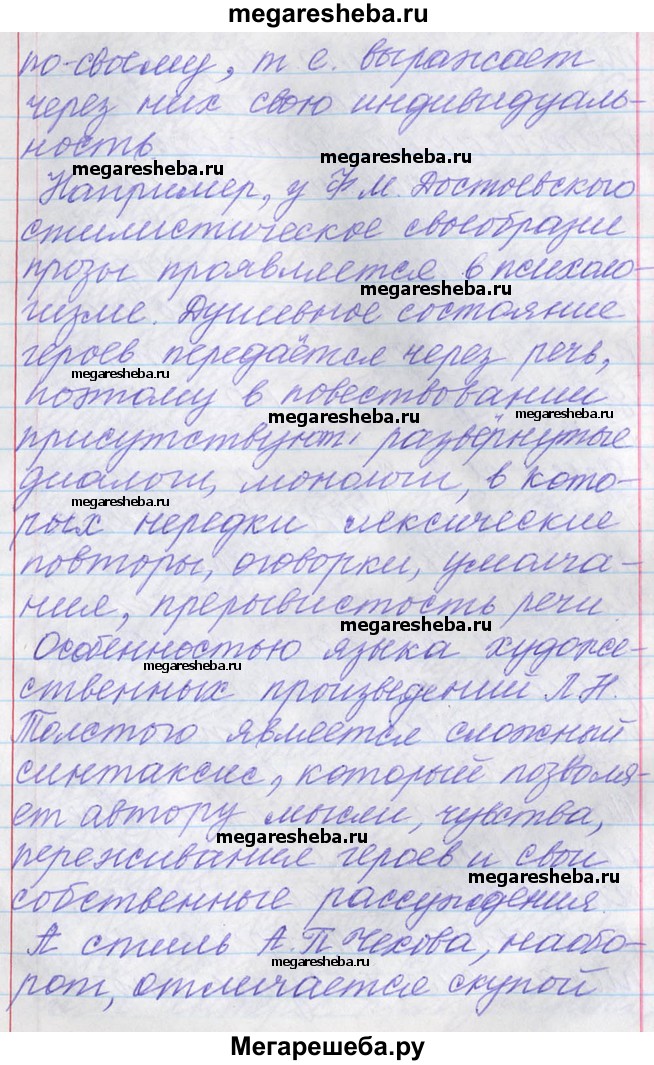 megaresheba.ru
по-своему, т е. выражает
через них свою индивидуаль-
ность
megaresheba.ru
megaresheba.ru
Например, у Ф М. Достоевского
стилистическое своеобразие
прозы проявляется в психоло-
megaresheba.ru
гизме. Душевное состояние
героев передаётся через речь,
megaresheba.ru
поэтому в повествовании
megaresheba.ru
megaresheba.ru
присутствуют развёрнутые
диалоги, монологи, в кото-
megaresheba.ru
рых нередки лексические
повторы, оговорки, умолча-
ния, прерывистость речи
megaresheba.ru
Особенностью языка художе-
megaresheba.ru
ственных произведений Л Н.
Толстого является сложный
синтаксис, который позволя-
ет автору мысли, чувства,
megaresheba.ru
переживания героев и свои
megaresheba.ru
собственные рассуждения.
А стиль А. П Чехова, наобо-
megaresheba.ru
рот, отличается скупой
Мегарешеба.ру